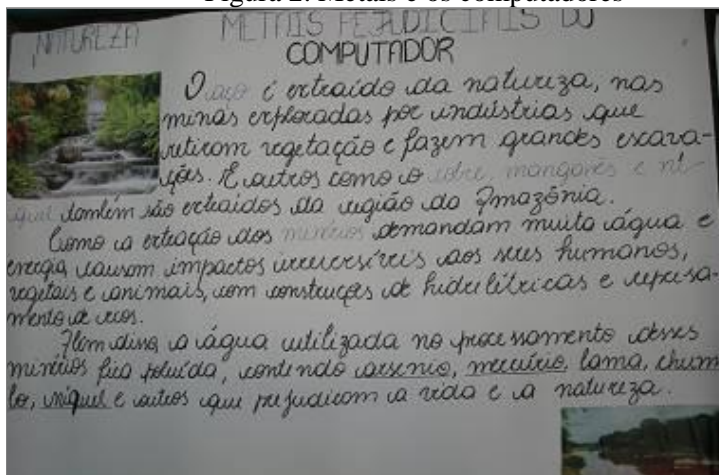 Figura 2: Metais e os computadores
NATUREZA
METAIS PEJUDICIAIS DO
COMPUTADOR
O aço é extraído da natureza, nas
minas exploradas por indústrias que
retiram vegetação e fazem grandes escava-
ções. E outros como o cobre, manganês e ní-
quel também são extraidos da região da Amazônia.
Como a extração dos minérios demandam muita água e
energia causam impactos irreversíveis aos seus humanos,
vegetais e animais, com construções de hidrelétricas e represa-
mento de rios.
Além disso, a água utilizada no processamento desses
minérios fica poluída, contendo arsenio, mercúrio, lama, chum
bo, níquel e outros que prejudicam a vida e a natureza.